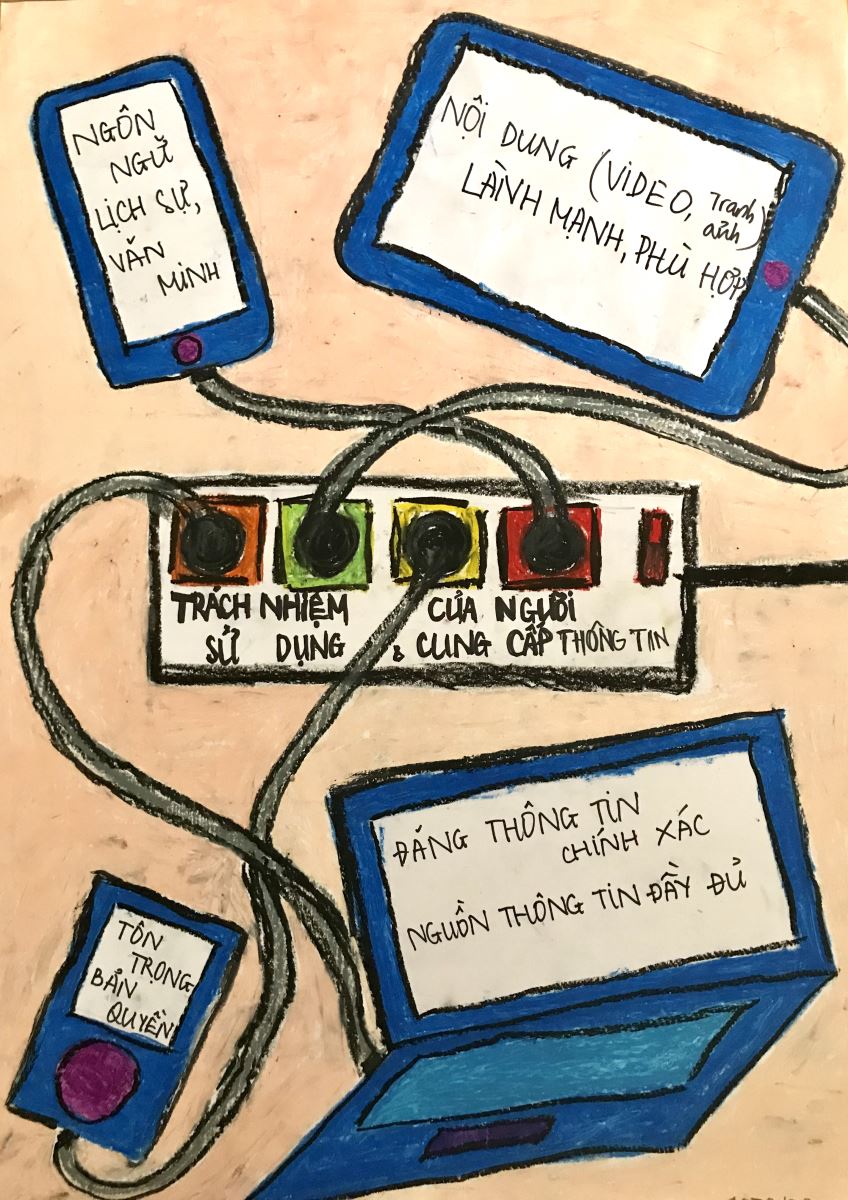 NGÔN
NGỮ
LỊCH SỰ,
VĂN
MINH
NỘI DUNG (VIDEO, Tranh ảnh)
LÀNH MẠNH, PHÙ HỢP
TRÁCH NHIỆM CỦA NGƯỜI
SỬ DỤNG & CUNG CẤP THÔNG TIN
ĐĂNG THÔNG TIN
CHÍNH XÁC
NGUỒN THÔNG TIN ĐẦY ĐỦ
TÔN
TRỌNG
BẢN
QUYỀN